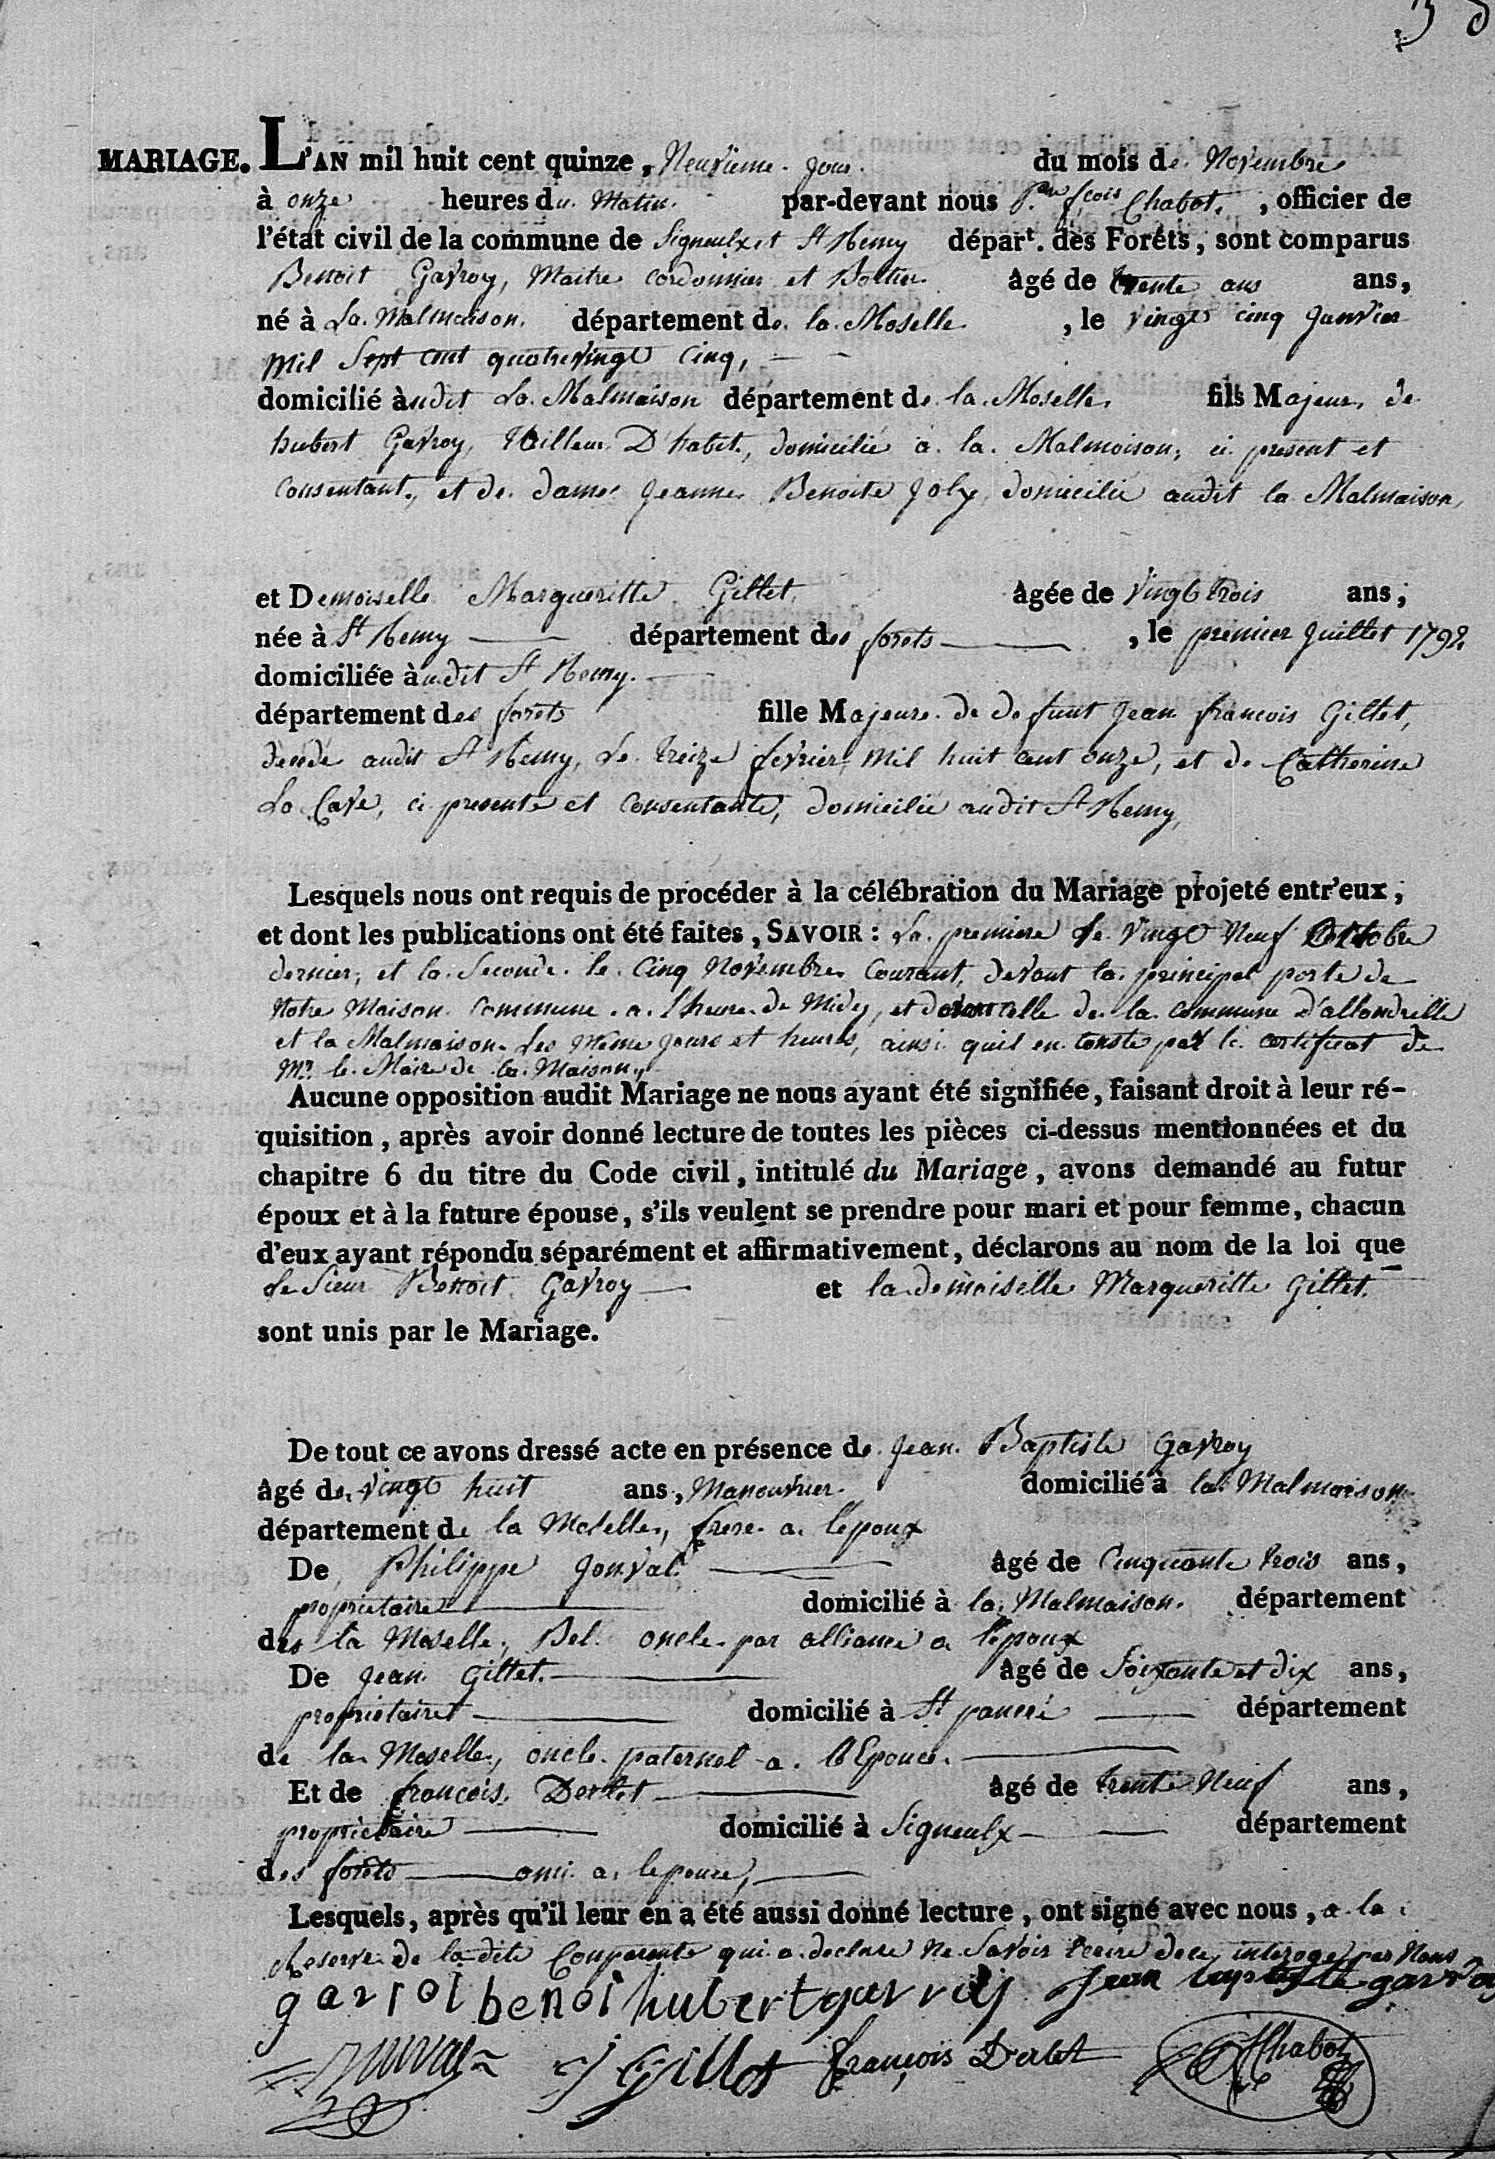 MARIAGE. L'AN mil huit cent quinze, Neuvieme jour du mois de Novembre
à onze heures du Matin. par-devant nous fcois Chabot, officier de
l'état civil de la commune de Signeulx et St Remy départ. des Forêts, sont comparus
Benoit Gavroy, Maitre cordonnier et Bottier âgé de trente ans ans,
né à La Malmaison, département de la Moselle, le vingt cinq Janvier
Mil Sept cent quatrevingt Cinq,
domicilié audit La Malmaison département de la Moselle, fils Majeur, de
hubert Gavroy, tailleur D'habit, domicilié a la Malmaison, ci present et
Consentant, et de dame Jeanne Benoite Joly domicilié audit la Malmaison,
et Demoiselle Margueritte Gillet, âgée de Vingt trois ans;
née à St Remy département des forets, le premier Juillet 1792
domiciliée audit St Remy.
département des forets fille Majeure de defunt Jean francois Gillet,
décédé audit St Remy, Le treize fevrier mil huit cent onze, et de Catherine
La Cave, ci presente et Consentante, domicilié audit St Remy,
Lesquels nous ont requis de procéder à la célébration du Mariage projeté entr'eux,
et dont les publications ont été faites, SAVOIR: La premiere le Vingt Neuf Octobre
dernier, et la Seconde le Cinq Novembre Courant, devant la principal porte de
Notre Maison Commune a l'heure de Midy, et devant celle de la commune d'allondrelle
et la Malmaison les Même jours et heures, ainsi quil en conste par le certificat de
Mr. le Maire de la Maison,
Aucune opposition audit Mariage ne nous ayant été signifiée, faisant droit à leur ré-
quisition, après avoir donné lecture de toutes les pièces ci-dessus mentionnées et du
chapitre 6 du titre du Code civil, intitulé du Mariage, avons demandé au futur
époux et à la future épouse, s'ils veulent se prendre pour mari et pour femme, chacun
d'eux ayant répondu séparément et affirmativement, déclarons au nom de la loi que
Le Sieur Benoit Gavroy et la demoiselle Margueritte Gillet.
sont unis par le Mariage.
De tout ce avons dressé acte en présence de Jean Baptiste Gavroy
âgé de Vingt huit ans, Manouvrier domicilié à la Malmaison
département de la Moselle, frere a l'epoux
De Philippe Jonval âgé de Cinquante trois ans,
propriétaire domicilié à la Malmaison. département
des la Moselle, Bel oncle par alliance a l'epoux
De Jean Gillet. âgé de Soixante et dix ans,
propriétaire domicilié à St pancré département
de la Moselle, oncle paternel a l'Epouse.
Et de françois Derlet âgé de trente Neuf ans,
propriétaire domicilié à Signeulx département
des forêts ami a lepouse,
Lesquels, après qu'il leur en a été aussi donné lecture, ont signé avec nous, a la
Reserve de la dite Comparente qui a declaré Ne Savoir Ecrire de ce interogé par Nous
garroi benoi hubert garroy Jean baptiste garroy
J Gillet françois Derlet Chabot